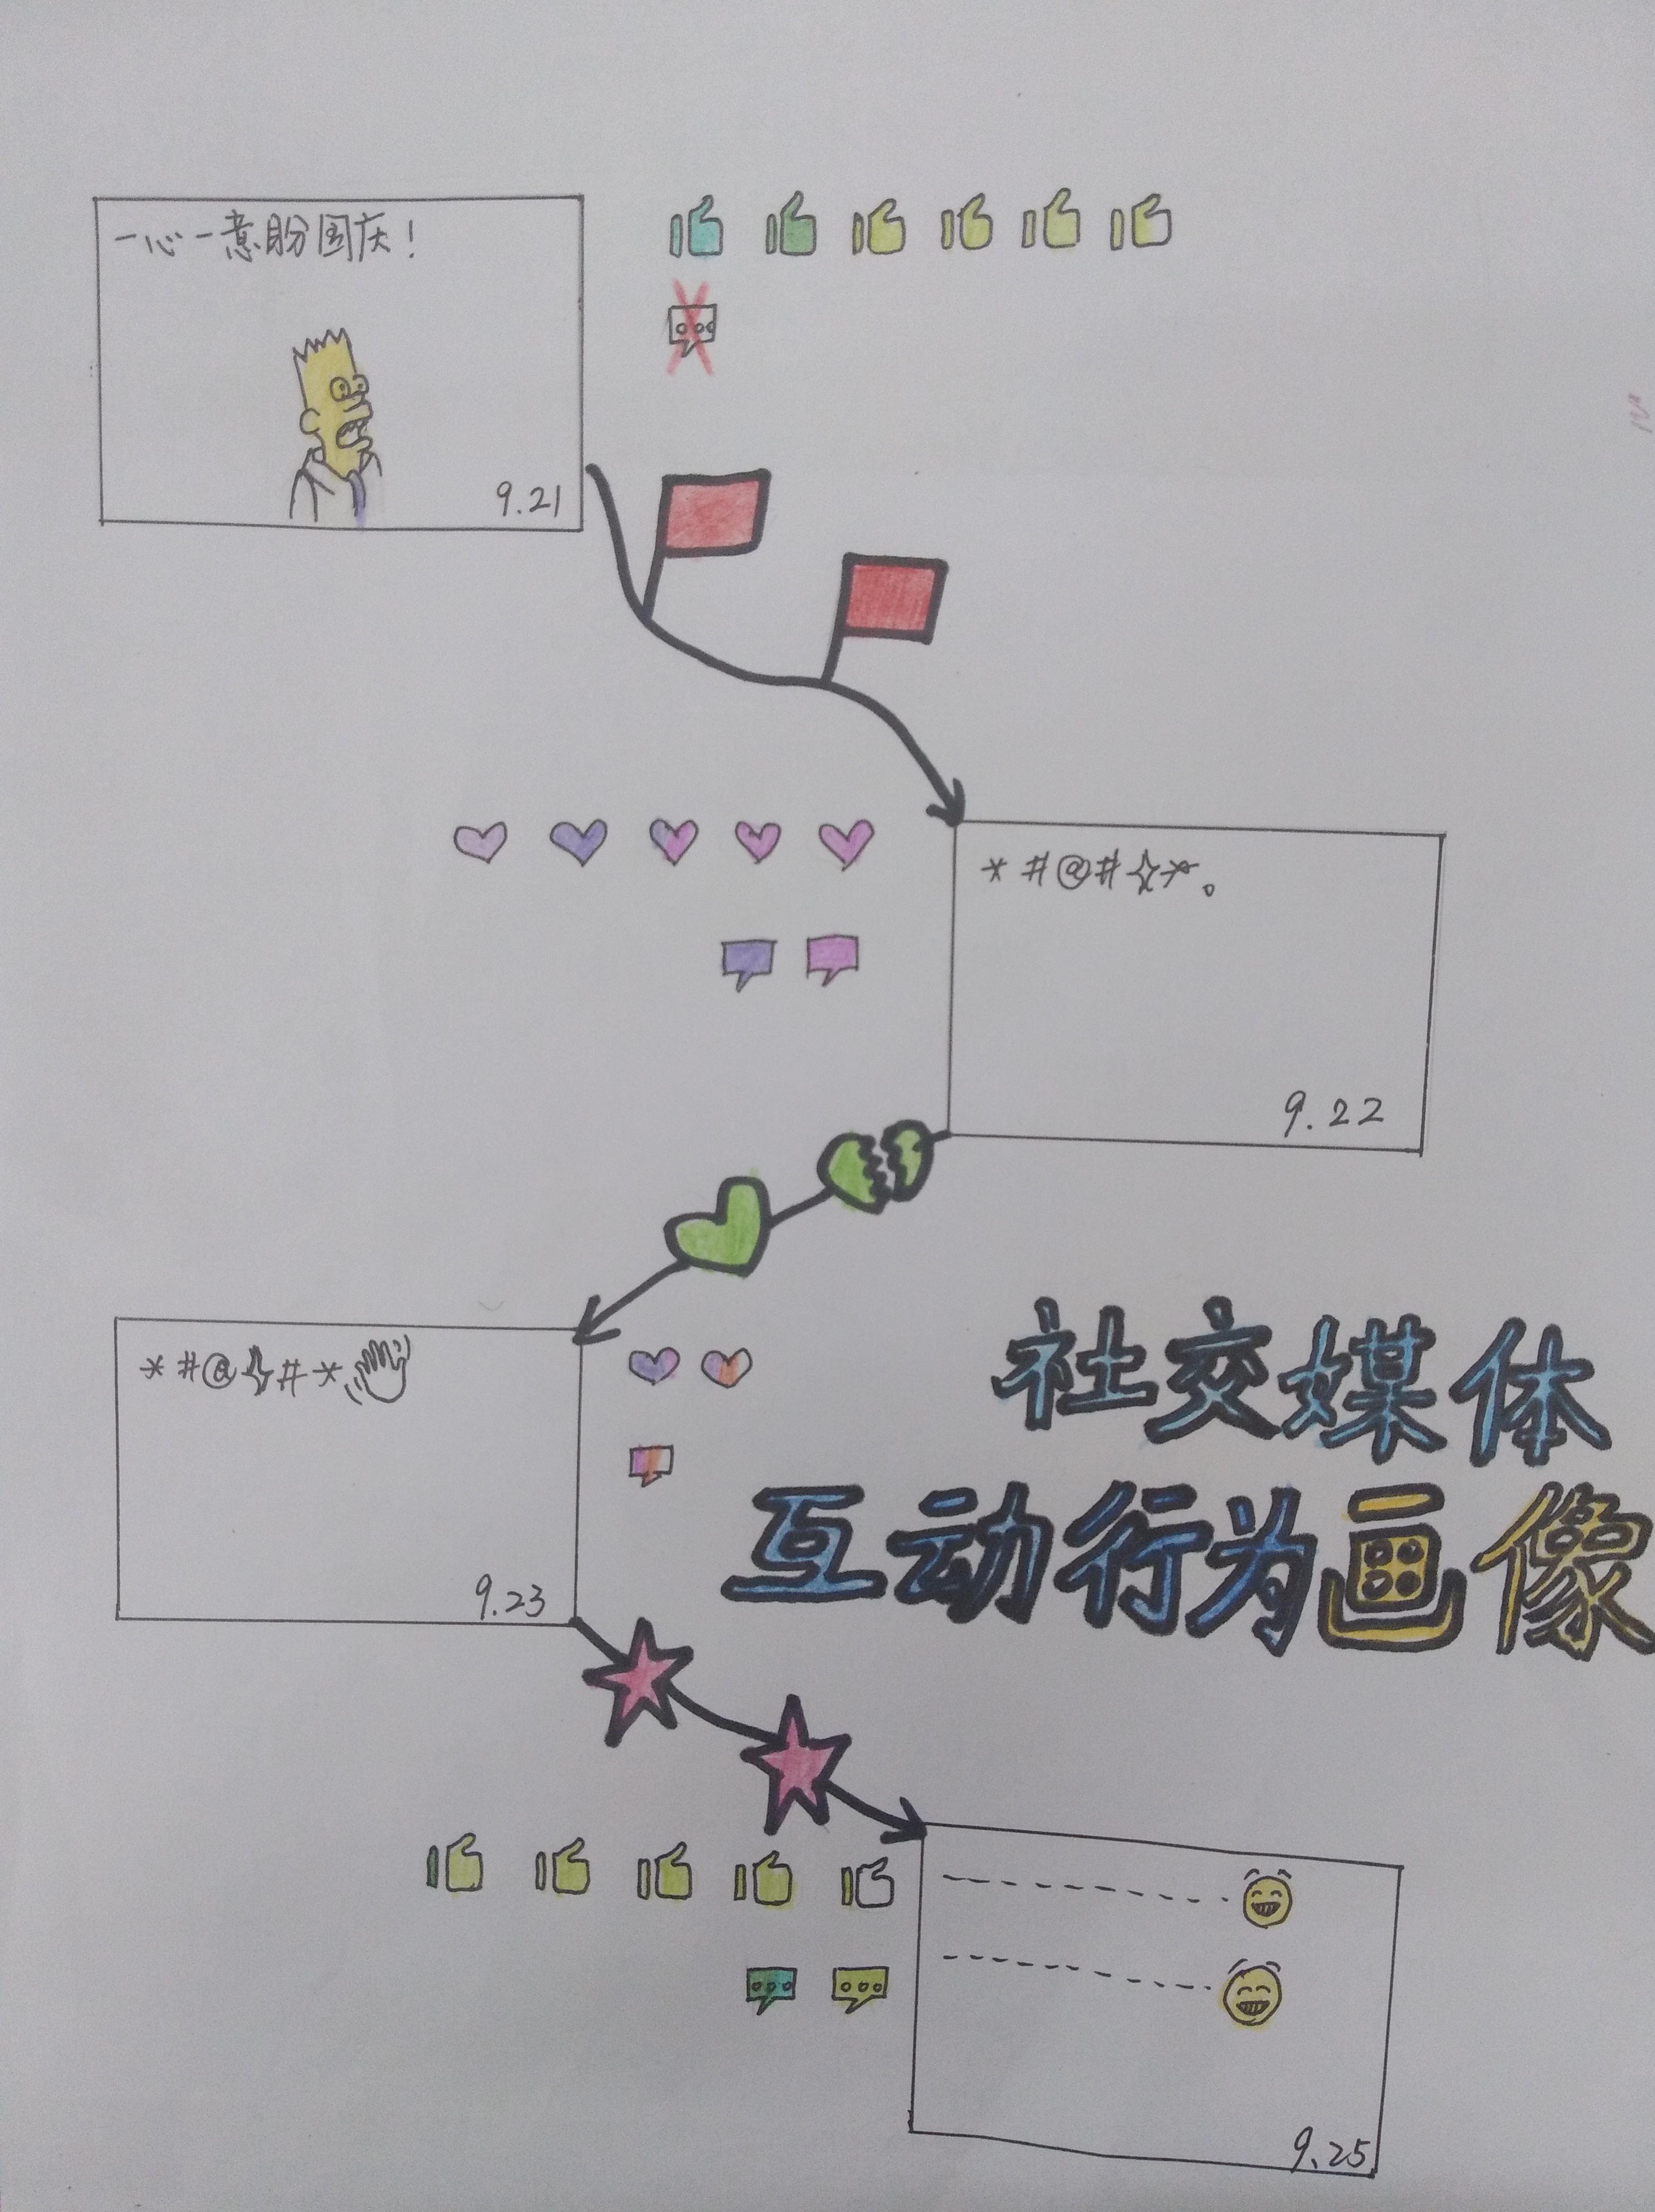 一心一意盼国庆！
9.21
*#@#✧*。
9.22
*#@✧#*
9.23
社交媒体
互动行为画像
9.25